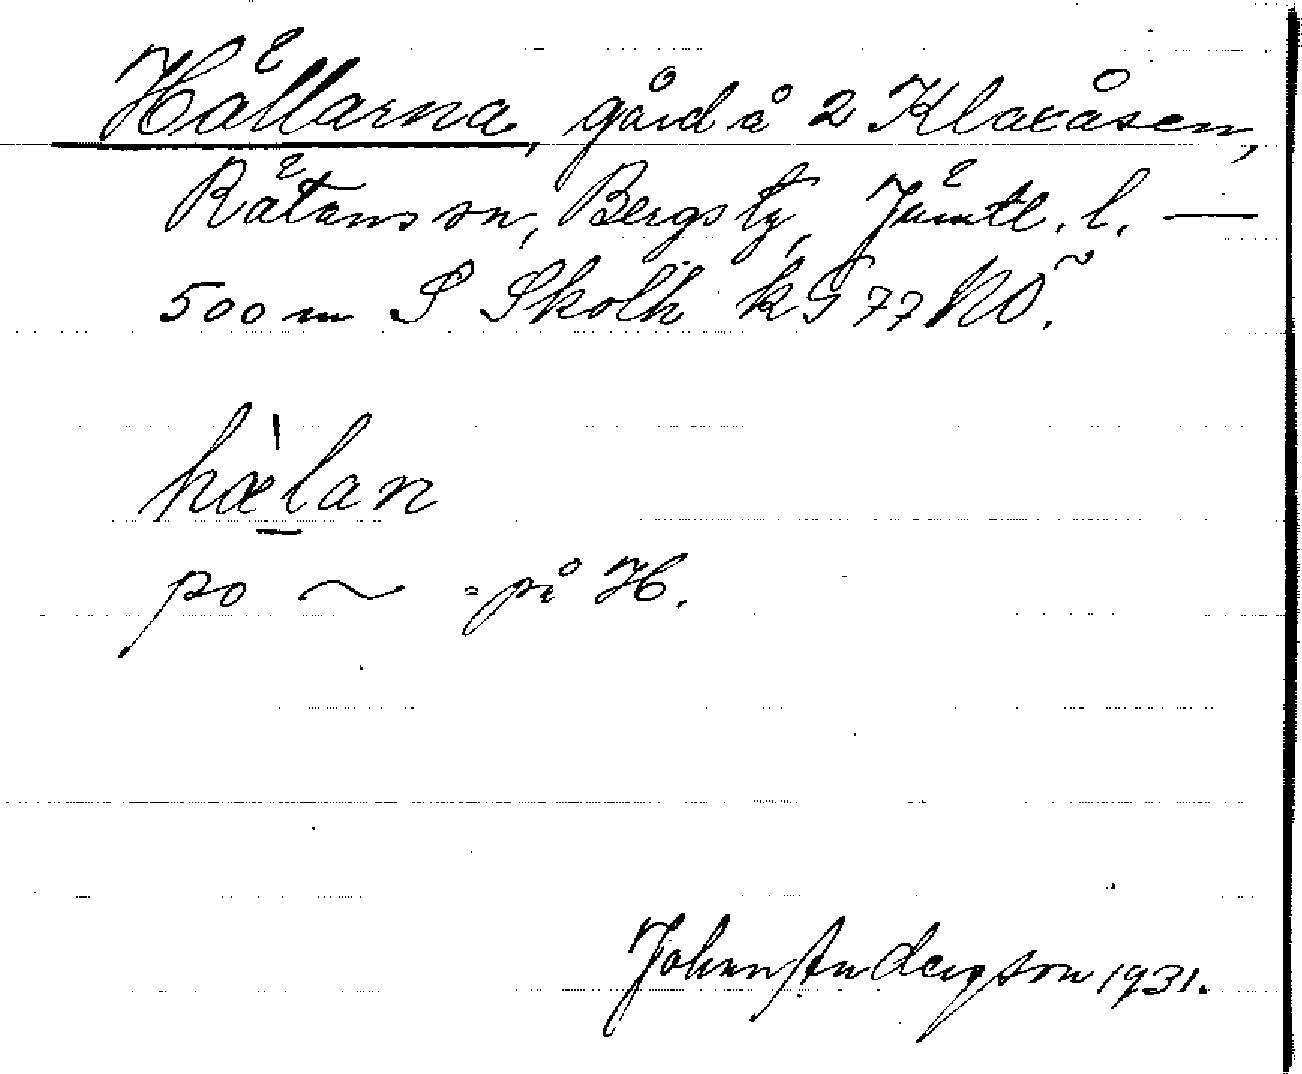 Hällarna, gård å 2 Klaxåsen,
Rätans sn, Bergs tg, Jämtl. l. —
500 m S Skolh kG 77 NO.
hælan
po ~ = på H.
Johan Anderson 1931.